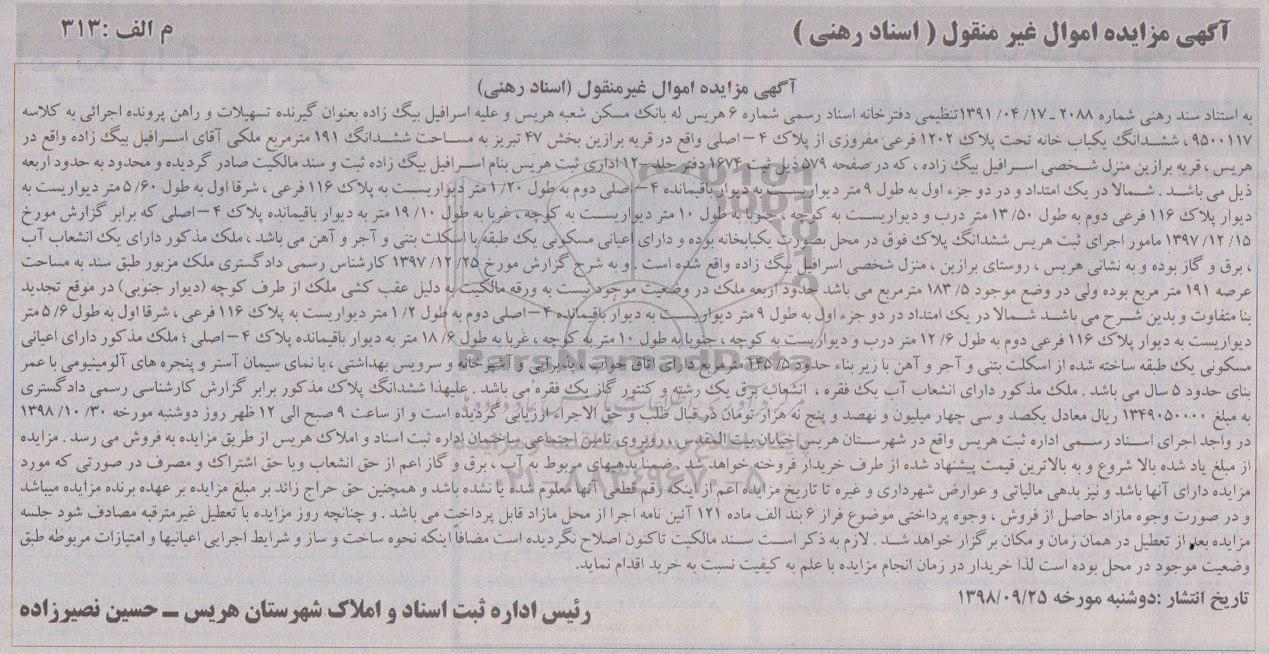 آگهی مزایده اموال غیر منقول ( اسناد رهنی )
م الف :۳۱۳
آگهی مزایده اموال غیرمنقول (اسناد رهنی)
به استناد سند رهنی شماره ۲۰۸۸ - ۱۳۹۱/۰۴/۱۷تنظیمی دفترخانه اسناد رسمی شماره ۶ هریس له بانک مسکن شعبه هریس و علیه اسرافیل بیگ زاده بعنوان گیرنده تسهیلات و راهن پرونده اجرائی به کلاسه
۹۵۰۰۱۱۷ ، ششدانگ یکباب خانه تحت پلاک ۱۲۰۲ فرعی مفروزی از پلاک ۴ – اصلی واقع در قریه برازین بخش ۴۷ تبریز به مساحت ششدانگ ۱۹۱ مترمربع ملکی آقای اسرافیل بیگ زاده واقع در
هریس ، قریه برازین منزل شخصی اسرافیل بیگ زاده ، که در صفحه ۵۷۹ ذیل ثبت ۱۶۷۴ دفتر جلد – ۱۲ اداری ثبت هریس بنام اسرافیل بیگ زاده ثبت و سند مالکیت صادر گردیده و محدود به حدود اربعه
ذیل می باشد . شمالا در یک امتداد و در دو جزء اول به طول ۹ متر دیواریست به دیوار باقیمانده ۴ – اصلی دوم به طول ۱/۲۰ متر دیواریست به پلاک ۱۱۶ فرعی ، شرقا اول به طول ۵/۶۰ متر دیواریست به
دیوار پلاک ۱۱۶ فرعی دوم به طول ۱۳/۵۰ متر درب و دیواریست به کوچه ، جنوبا به طول ۱۰ متر دیواریست به کوچه ، غربا به طول ۱۹/۱۰ متر به دیوار باقیمانده پلاک ۴ – اصلی که برابر گزارش مورخ
۱۳۹۷/۱۲/۱۵ مامور اجرای ثبت هریس ششدانگ پلاک فوق در محل بصورت یکبابخانه بوده و دارای اعیانی مسکونی یک طبقه با اسکلت بتنی و آجر و آهن می باشد ، ملک مذکور دارای یک انشعاب آب
، برق و گاز بوده و به نشانی هریس ، روستای برازین ، منزل شخصی اسرافیل بیگ زاده واقع شده است . و به شرح گزارش مورخ ۱۳۹۷/۱۲/۲۵ کارشناس رسمی دادگستری ملک مزبور طبق سند به مساحت
عرصه ۱۹۱ متر مربع بوده ولی در وضع موجود ۱۸۳/۵ مترمربع می باشد حدود اربعه ملک در وضعیت موجود نسبت به ورقه مالکیت به دلیل عقب کشی ملک از طرف کوچه (دیوار جنوبی) در موقع تجدید
بنا متفاوت و بدین شرح می باشد شمالا در یک امتداد در دو جزء اول به طول ۹ متر دیواریست به دیوار باقیمانده ۴ – اصلی دوم به طول ۱/۲ متر دیواریست به پلاک ۱۱۶ فرعی ، شرقا اول به طول ۵/۶ متر
دیواریست به دیوار پلاک ۱۱۶ فرعی دوم به طول ۱۲/۶ متر درب و دیواریست به کوچه ، جنوبا به طول ۱۰ متر به کوچه ، غربا به طول ۱۸/۶ متر به دیوار باقیمانده پلاک ۴ – اصلی ؛ ملک مذکور دارای اعیانی
مسکونی یک طبقه ساخته شده از اسکلت بتنی و آجر و آهن با زیر بناء حدود ۱۴۵/۵ مترمربع دارای اتاق خواب ، پذیرایی و آشپزخانه و سرویس بهداشتی ، با نمای سیمان آستر و پنجره های آلومینیومی با عمر
بنای حدود ۵ سال می باشد . ملک مذکور دارای انشعاب آب یک فقره ، انشعاب برق یک رشته و کنتور گاز یک فقره می باشد . علیهذا ششدانگ پلاک مذکور برابر گزارش کارشناسی رسمی دادگستری
به مبلغ ۱۳۴۹۰۵۰۰۰۰ ریال معادل یکصد و سی چهار میلیون و نهصد و پنج هزار تومان در قبال طلب و حق الاجراء ارزیابی گردیده است و از ساعت ۹ صبح الی ۱۲ ظهر روز دوشنبه مورخه ۱۳۹۸/۱۰/۳۰
در واحد اجرای اسناد رسمی اداره ثبت هریس واقع در شهرستان هریس خیابان بیت المقدس ، روبروی تامین اجتماعی ساختمان اداره ثبت اسناد و املاک هریس از طریق مزایده به فروش می رسد . مزایده
از مبلغ یاد شده بالا شروع و به بالاترین قیمت پیشنهاد شده از طرف خریدار فروخته خواهد شد . ضمنا بدهیهای مربوط به آب ، برق و گاز اعم از حق انشعاب ویا حق اشتراک و مصرف در صورتی که مورد
مزایده دارای آنها باشد و نیز بدهی مالیاتی و عوارض شهرداری و غیره تا تاریخ مزایده اعم از اینکه رقم قطعی آنها معلوم شده یا نشده باشد و همچنین حق حراج زائد بر مبلغ مزایده بر عهده برنده مزایده میباشد
و در صورت وجوه مازاد حاصل از فروش ، وجوه پرداختی موضوع فراز ۶ بند الف ماده ۱۲۱ آئین نامه اجرا از محل مازاد قابل پرداخت می باشد . و چنانچه روز مزایده با تعطیل غیرمترقبه مصادف شود جلسه
مزایده بعد از تعطیل در همان زمان و مکان برگزار خواهد شد . لازم به ذکر است سند مالکیت تاکنون اصلاح نگردیده است مضافاً اینکه نحوه ساخت و ساز و شرایط اجرایی اعیانیها و امتیازات مربوطه طبق
وضعیت موجود در محل بوده است لذا خریدار در زمان انجام مزایده با علم به کیفیت نسبت به خرید اقدام نماید.
تاریخ انتشار :دوشنبه مورخه ۱۳۹۸/۰۹/۲۵
رئیس اداره ثبت اسناد و املاک شهرستان هریس – حسین نصیرزاده
ParsNamadData
۰۲۱-۸۸۳۴۹۶۷۰-۵